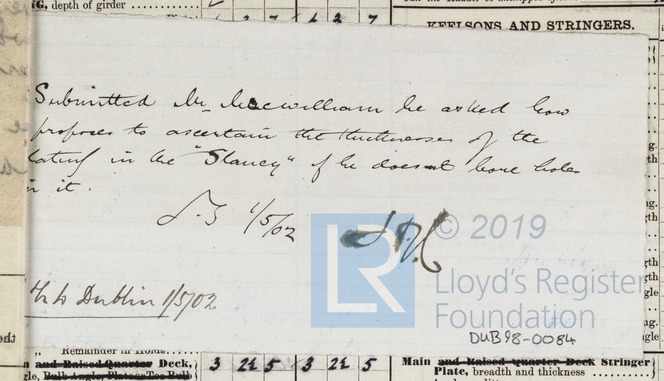 NG, depth of girder
KEELSONS AND STRINGERS.
Submitted Mr Macwilliam be asked how
proposes to ascertain the thicknesses of the
plating in the "Slaney" if he doesnt bore holes
in it.
1/5/02
© 2019
LR
Lloyd's Register
Foundation
to Dublin 1/5/02
DUB98-0084
„ Remainder in Holds
and Raised Quarter Deck,
Bulb Angle, Plate or Tee Bulb
3 2½ 5 3 2½ 5
Main and Raised Quarter Deck Stringer
Plate, breadth and thickness